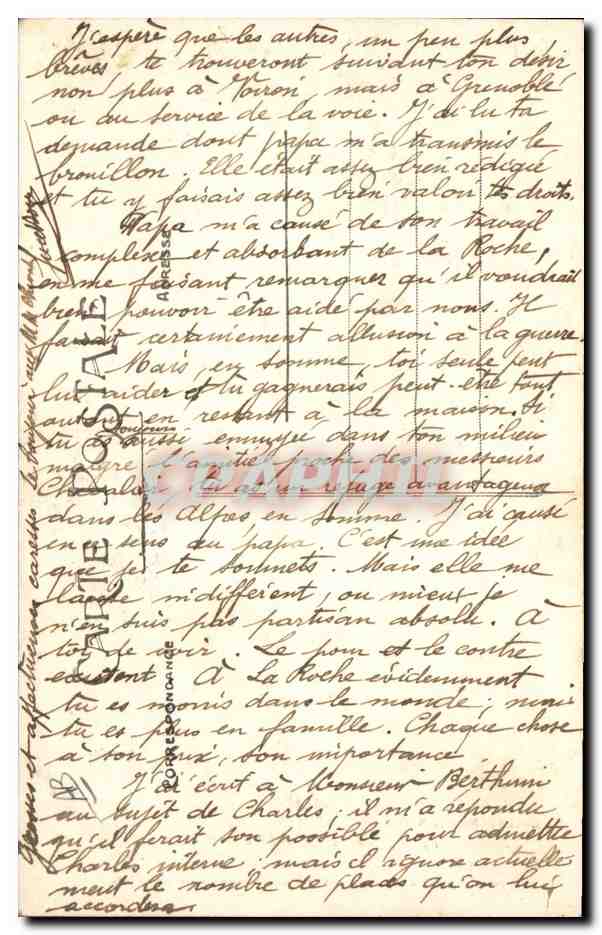 J'espère que les autres, un peu plus
brèves te trouveront suivant ton désir
non plus à Voiron, mais à Grenoble
ou au service de la voie. J'ai lu ta
demande dont papa m'a transmis le
brouillon. Elle était assez bien rédigée
et tu y faisais assez bien valoir tes droits.
Papa m'a causé de son travail
complexe et absorbant de la Roche,
en me faisant remarquer qu'il voudrait
bien pouvoir être aidé par nous. Il
faisait certainement allusion à la guerre.
Mais, en somme, toi seule peut
lui aider et tu gagnerais peut-être tout
autant en restant à la maison. Si
tu es aussi ennuyée dans ton milieu
toujours
malgré l'amitié proche des messieurs
Chevalier, tu as un refuge avantageux
dans les Alpes en somme. J'ai causé
en ce sens au papa. C'est une idée
que je te soumets. Mais elle me
laisse indifférent, ou mieux je
n'en suis pas partisan absolu. À
toi de voir. Le pour et le contre
existent À La Roche évidemment
tu es moins dans le monde; mais
tu es plus en famille. Chaque chose
à son prix, son importance
J'ai écrit à Monsieur Berthuin
au sujet de Charles; il m'a répondu
qu'il ferait son possible pour admettre
Charles interne; mais il ignore actuelle
ment le nombre de places qu'on lui
accordera.
et affectueuses caresses le bonjour aux
CARTE POSTALE
ADRESSE
CORRESPONDANCE
AB
CPAPHIL